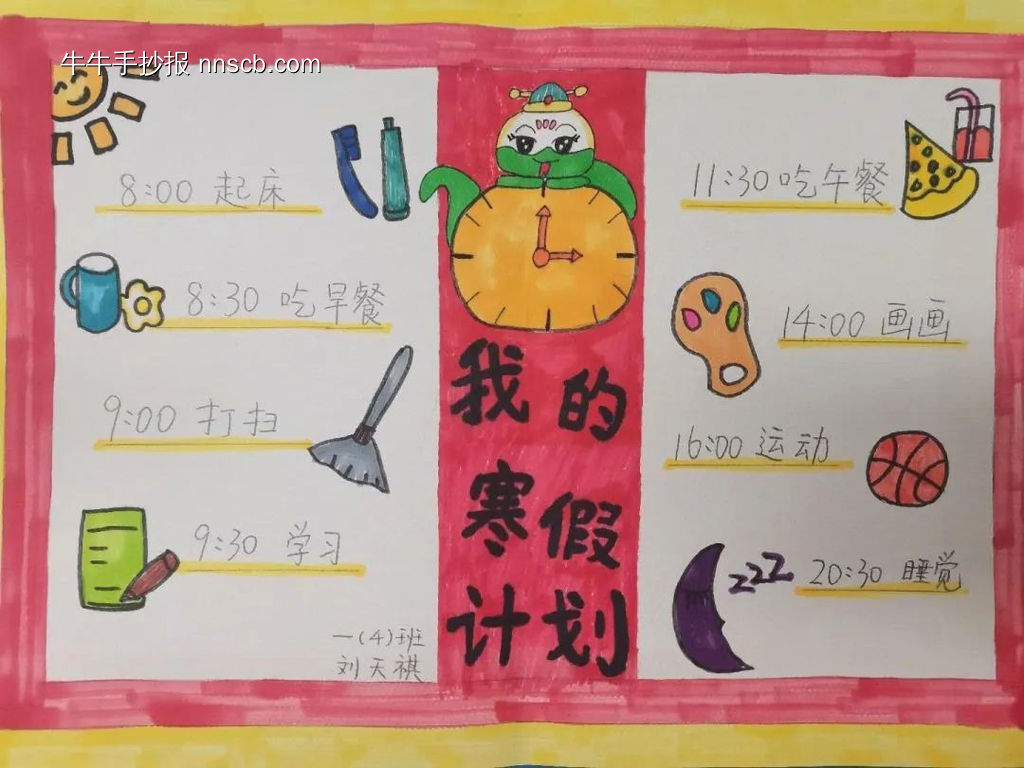 牛牛手抄报 nnscb.com
8:00 起床
8:30 吃早餐
9:00 打扫
9:30 学习
一(4)班
刘天祺
我的
寒假
计划
11:30 吃午餐
14:00 画画
16:00 运动
zzz
20:30 睡觉